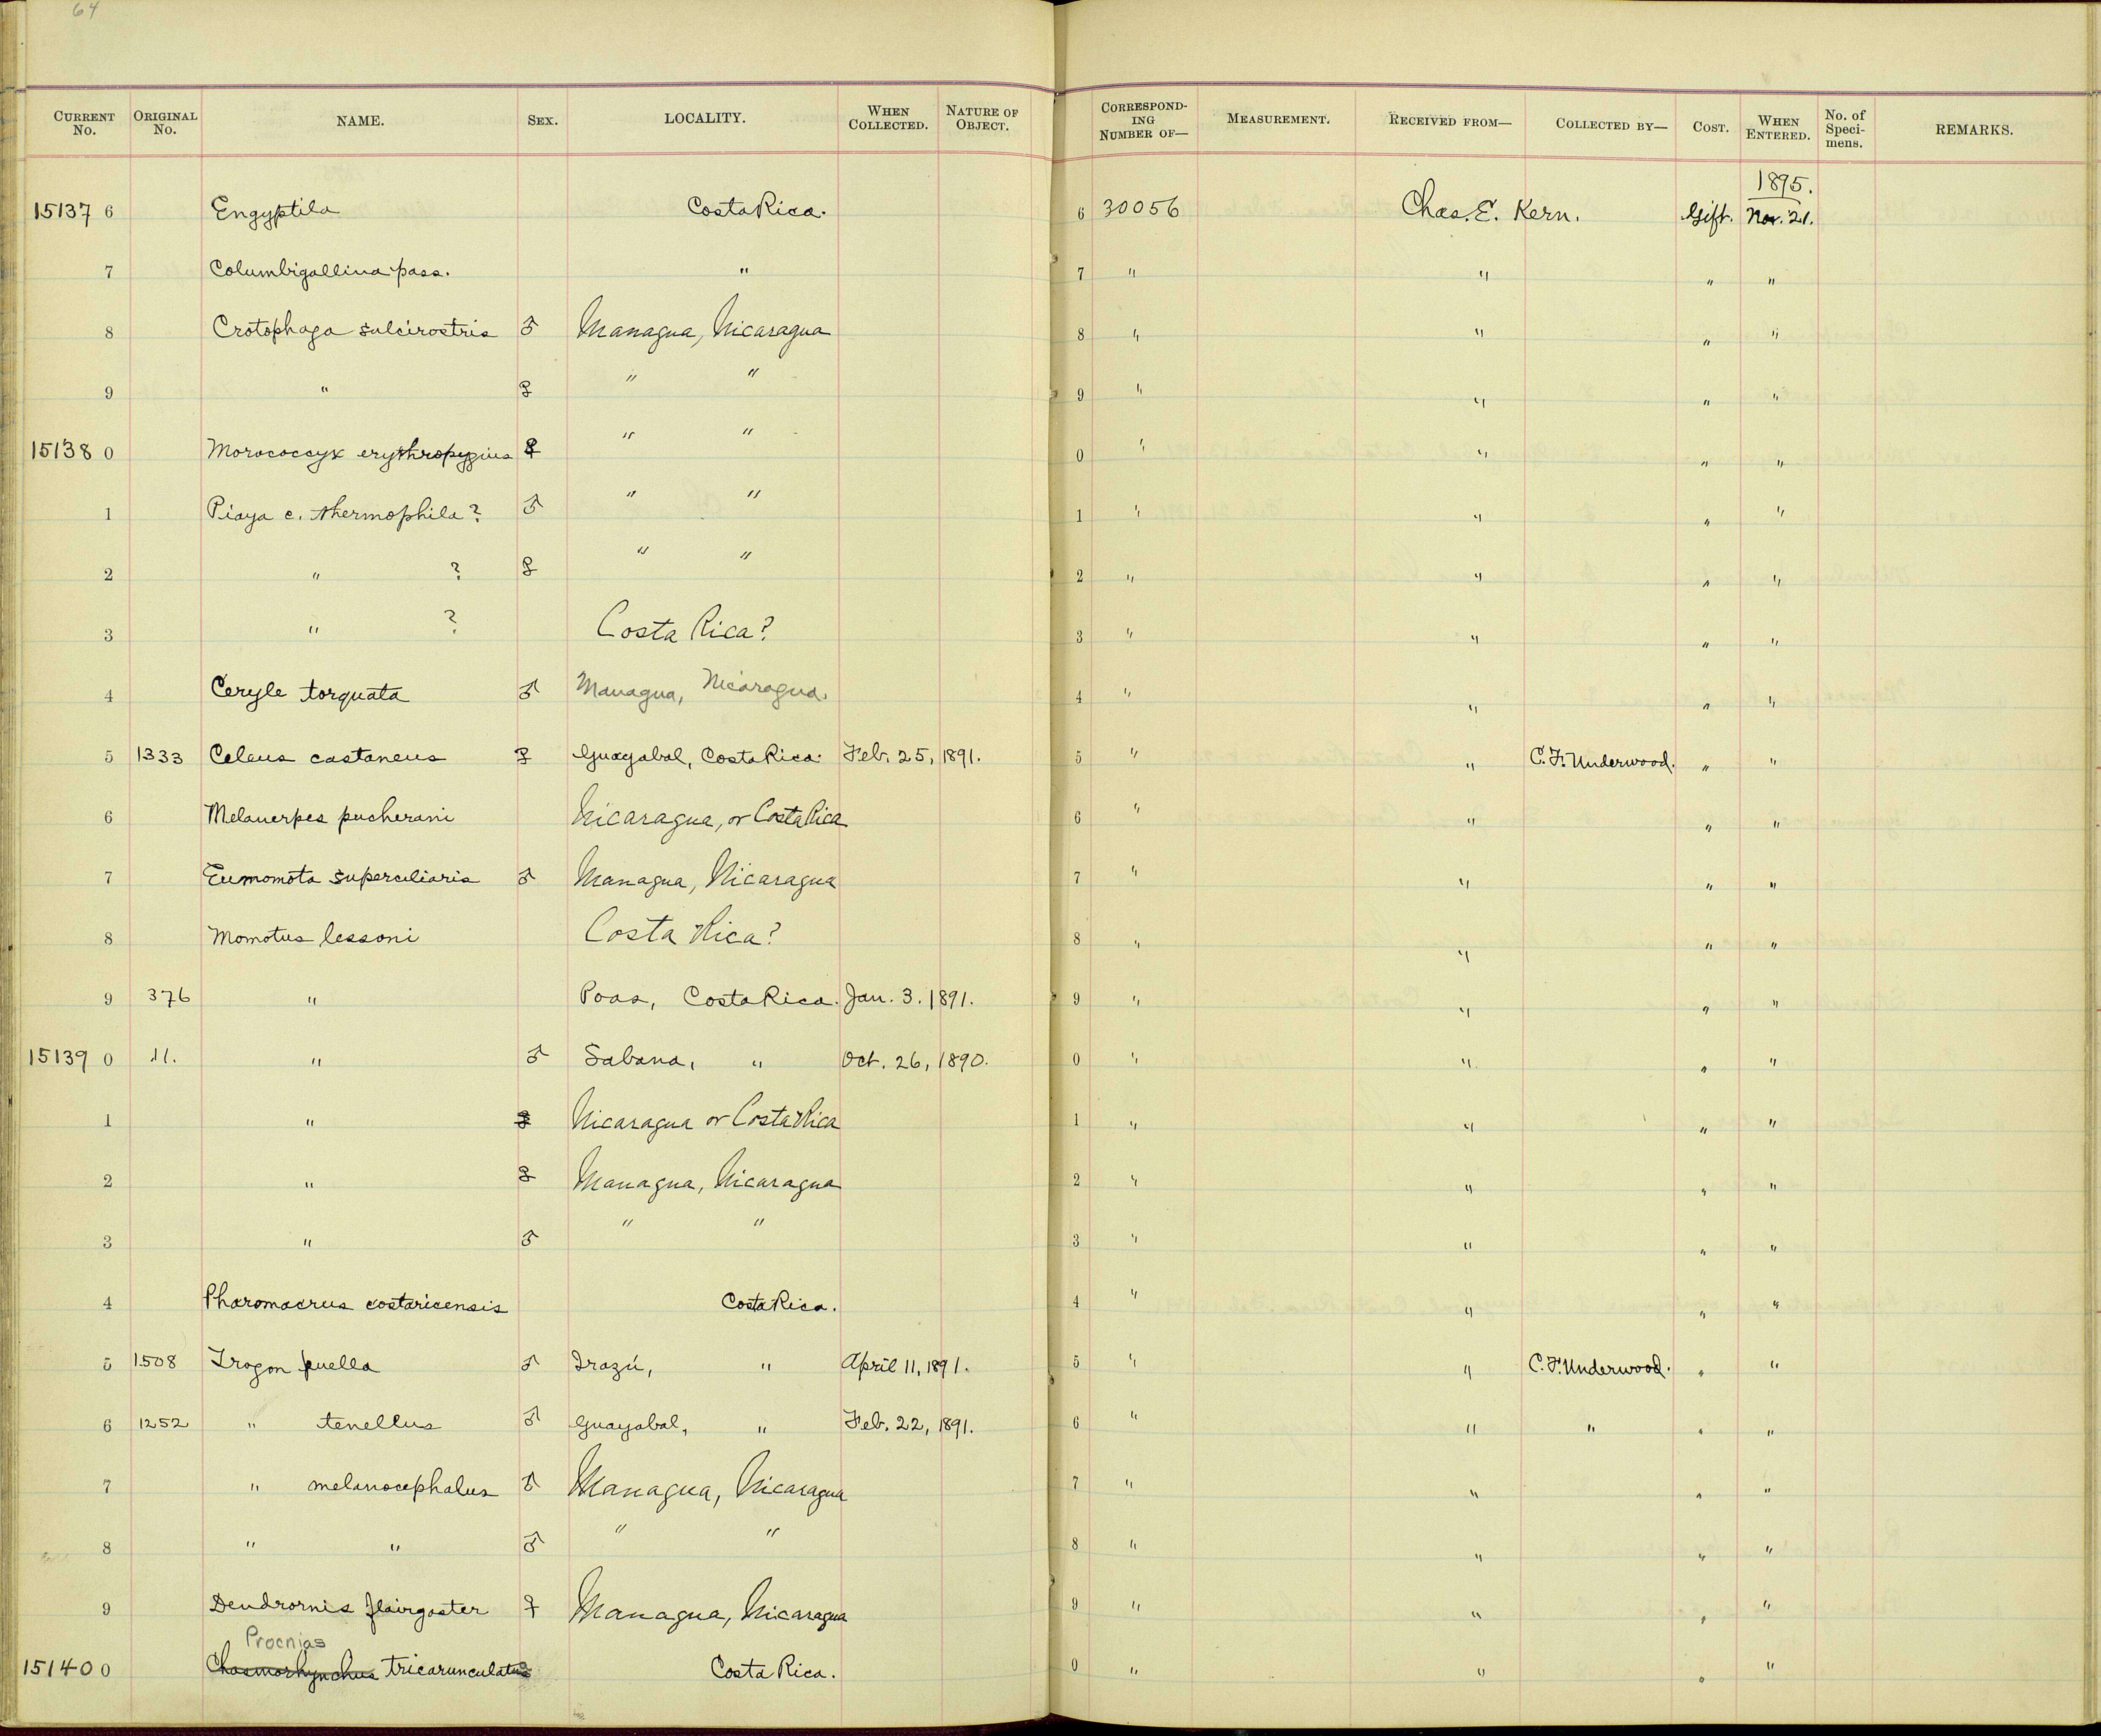 64
CURRENT No. ORIGINAL No. NAME. SEX. LOCALITY. WHEN COLLECTED. NATURE OF OBJECT. CORRESPONDING NUMBER OF— MEASUREMENT. RECEIVED FROM— COLLECTED BY— COST. WHEN ENTERED. No. of Specimens. REMARKS.
1895.
15137 6 Engyptila Costa Rica. 6 30056 Chas. E. Kern. Gift. Nov. 21.
7 Columbigallina pass. " 7 " " " "
8 Crotophaga sulcirostris ♂ Managua, Nicaragua 8 " " " "
9 " ♀ " " 9 " " " "
15138 0 Morococcyx erythropygius ♀ " " 0 " " " "
1 Piaya c. thermophila? ♂ " " 1 " " " "
2 " ? ♀ " " 2 " " " "
3 " ? Costa Rica? 3 " " " "
4 Ceryle torquata ♂ Managua, Nicaragua. 4 " " " "
5 1333 Celeus castaneus ♀ Guayabal, Costa Rica. Feb. 25, 1891. 5 " " C. F. Underwood. " "
6 Melanerpes pucherani Nicaragua, or Costa Rica 6 " " " "
7 Eumomota superciliaris ♂ Managua, Nicaragua 7 " " " "
8 Momotus lessoni Costa Rica? 8 " " " "
9 376 " Poas, Costa Rica. Jan. 3. 1891. 9 " " " "
15139 0 11. " ♂ Sabana, " Oct. 26, 1890. 0 " " " "
1 " ♀ Nicaragua or Costa Rica 1 " " " "
2 " ♀ Managua, Nicaragua 2 " " " "
3 " ♂ " " 3 " " " "
4 Pharomacrus costaricensis Costa Rica. 4 " " " "
5 1508 Trogon puella ♂ Irazú, " April 11, 1891. 5 " " C. F. Underwood. " "
6 1252 " tenellus ♂ Guayabal, " Feb. 22, 1891. 6 " " " " "
7 " melanocephalus ♂ Managua, Nicaragua 7 " " " "
8 " " ♂ " " 8 " " " "
9 Dendrornis flavigaster ♀ Managua, Nicaragua 9 " " " "
Procnias
15140 0 Chasmorhynchus tricarunculatus Costa Rica. 0 " " " "